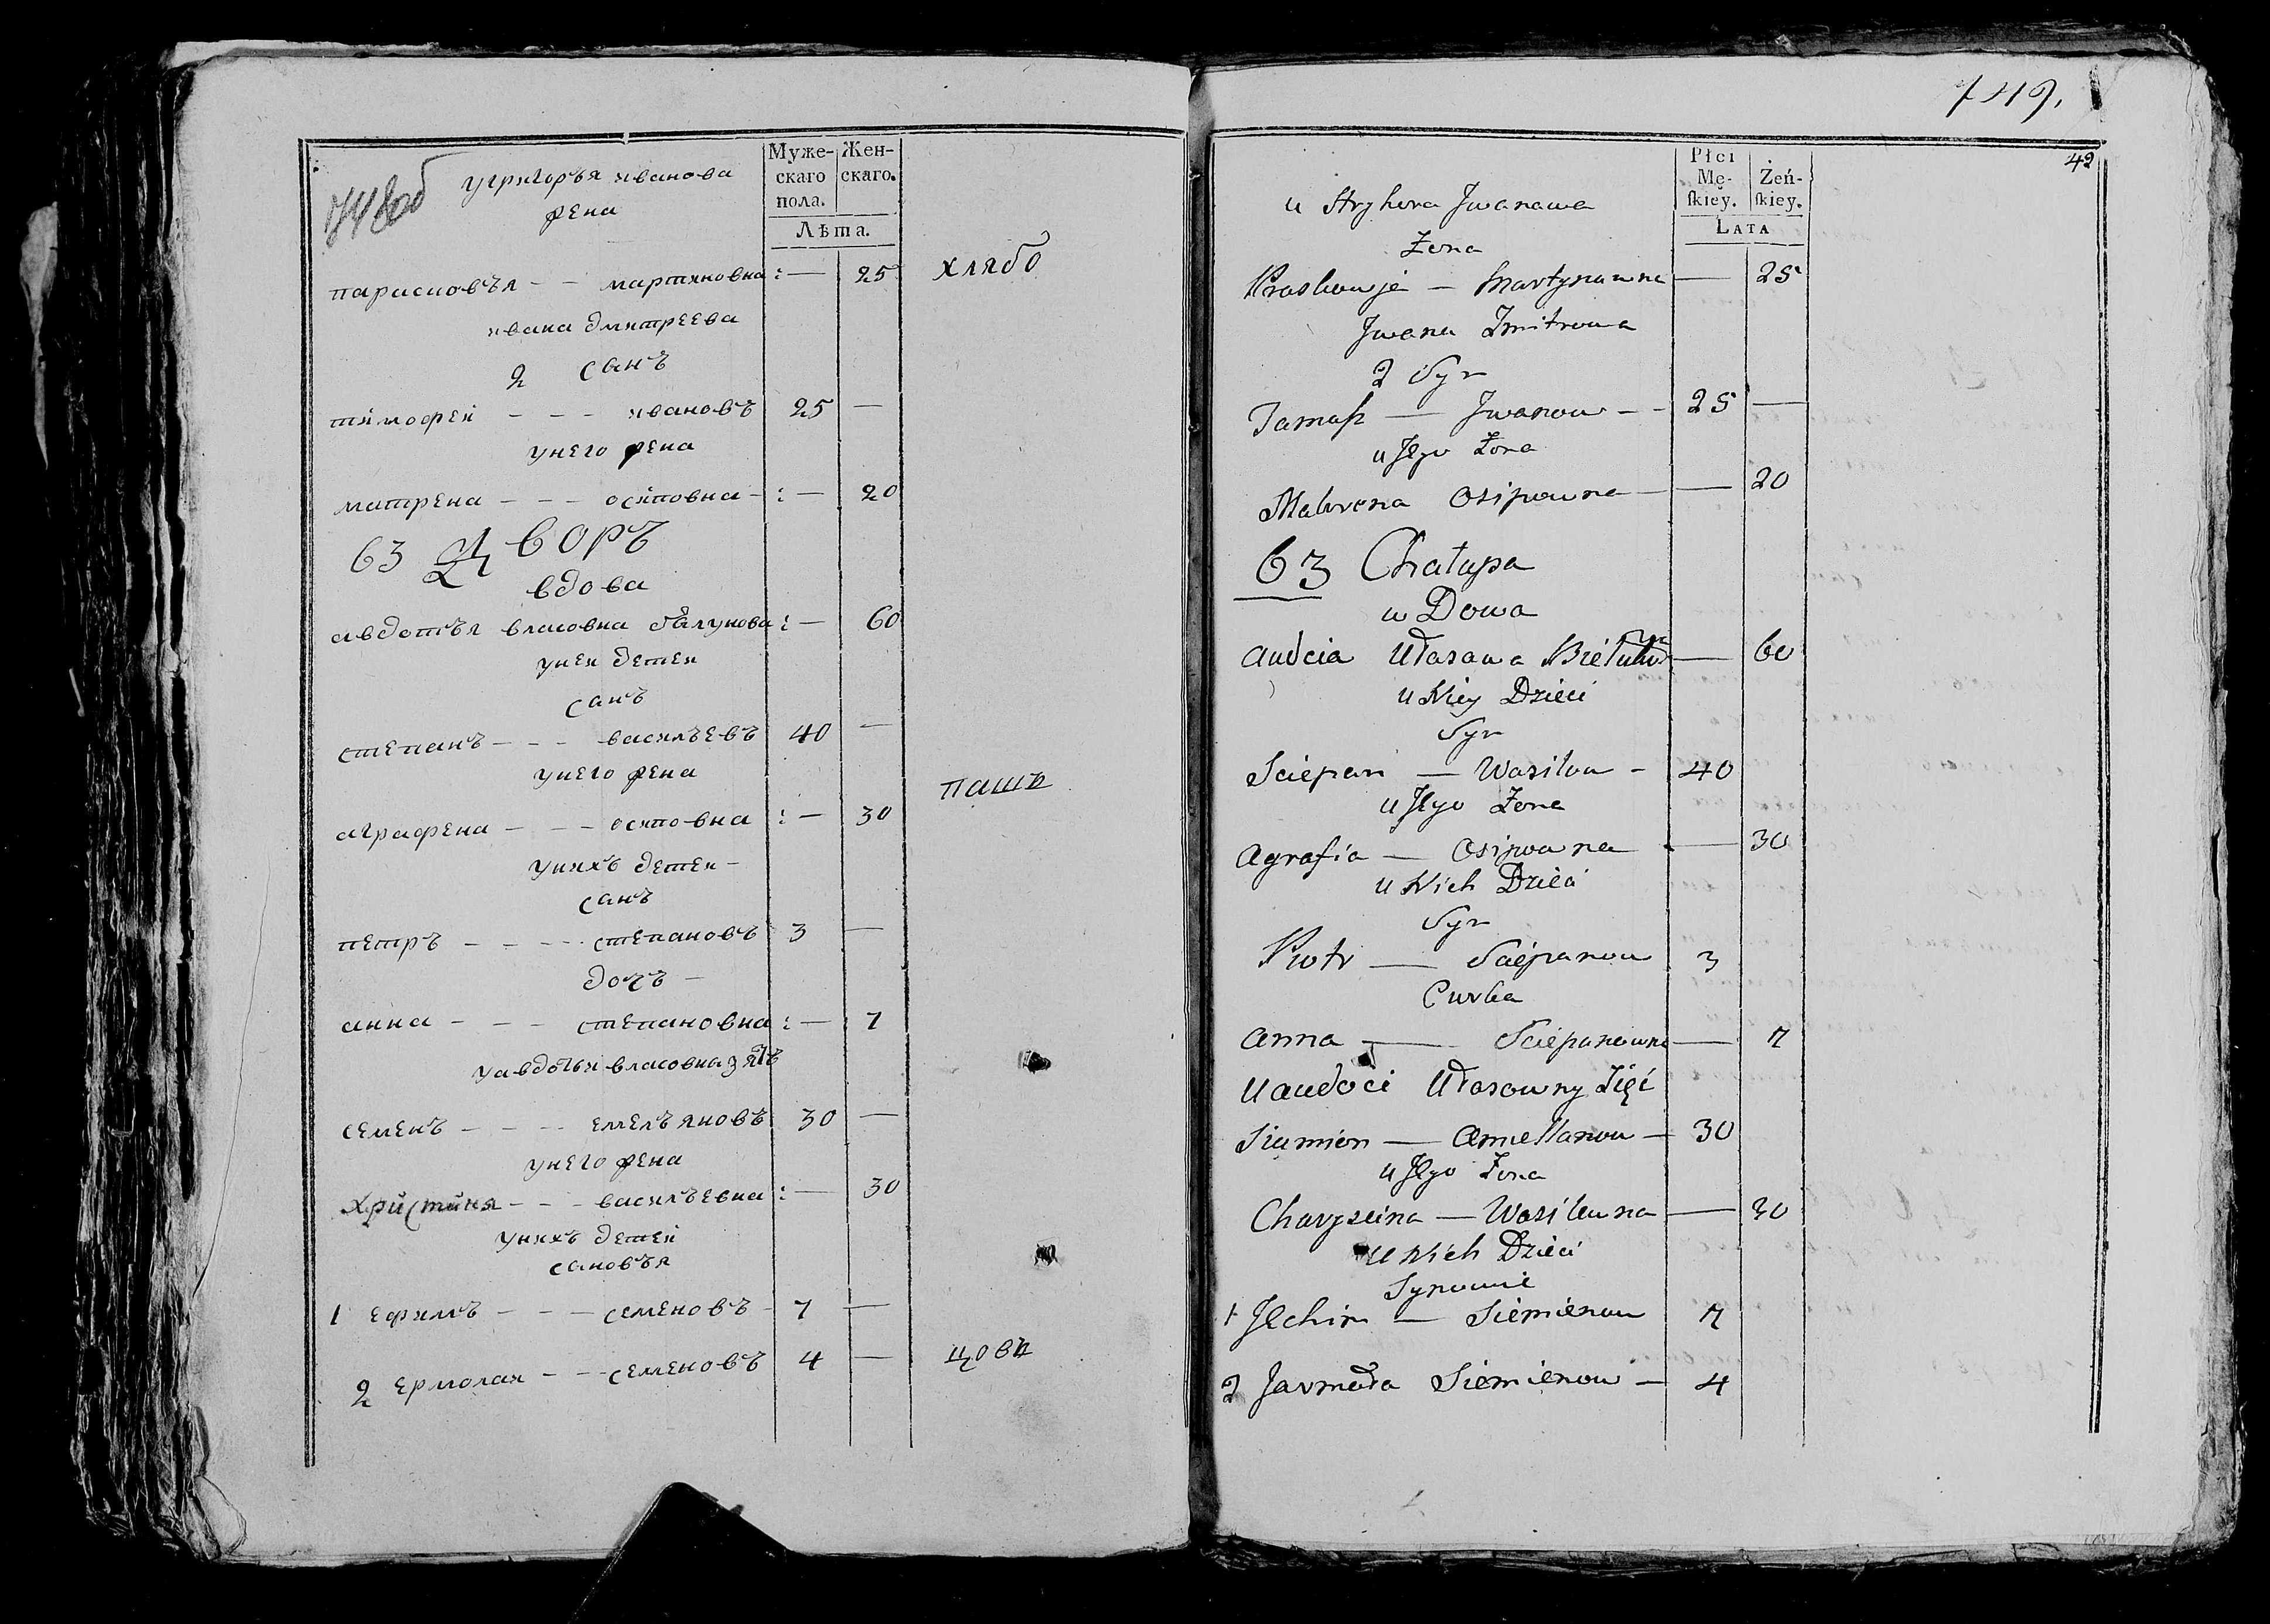 748об
Муже- Жен-
скаго скаго.
пола.
Лѣта.
угригоръя иванова
жена
парасковъя - - мартиновна : — 25
хлябо
ивана дмитреева
2 санъ
тимофеи - - - ивановъ 25 —
унего жена
матрена - - - осиповна - : — 20
63 Дворъ
вдова
авдотъя власовна балунова : — 60
унеи детеи
санъ
степанъ - - - василъевъ 40 —
унего жена
пашн
аграфена - - - осиповна : — 30
унихъ детеи -
санъ
петръ - - - - степановъ 3 —
дочъ -
анна - - - степановна : — 7
уавдотьи власовна зять
семенъ - - - - емелъяновъ 30 —
унего жена
христиня - - - василъевна : — 30
унихъ детеи
сановъя
1 ефимъ - - - семеновъ - 7 —
2 ермолаи - - - семеновъ 4 —
цовн
749.
42
Płci
Mę- Żeń-
ſkiey. ſkiey.
LATA
u Hryhora Jwanawa
Żona
Praskowja — Martynawna — 25
Jwana Zmitrowa
2 Syn
Tamaſz — Jwanow - - 25 —
u Jego Żona
Matrena Osipowna — 20
63 Chałupa
w Dowa
Audcia Ułasawa — 60
u Niey Dzieci
Syn
Sciepan — Wasilow - 40
u Jego Żona
Agrafia — Osipowna — 30
u Nich Dzieci
Syn
Piotr — Sciepanow 3
Curka
Anna — Sciepanowna — 7
U Audoci Ułasowny Zięć
Siemion — Amellanow — 30
u Jego Żona
Charyscina — Wasilewna — 30
U Nich Dzieci
Synowie
1 Jechim — Siemienow 7
2 Jarmoła Siemienow — 4